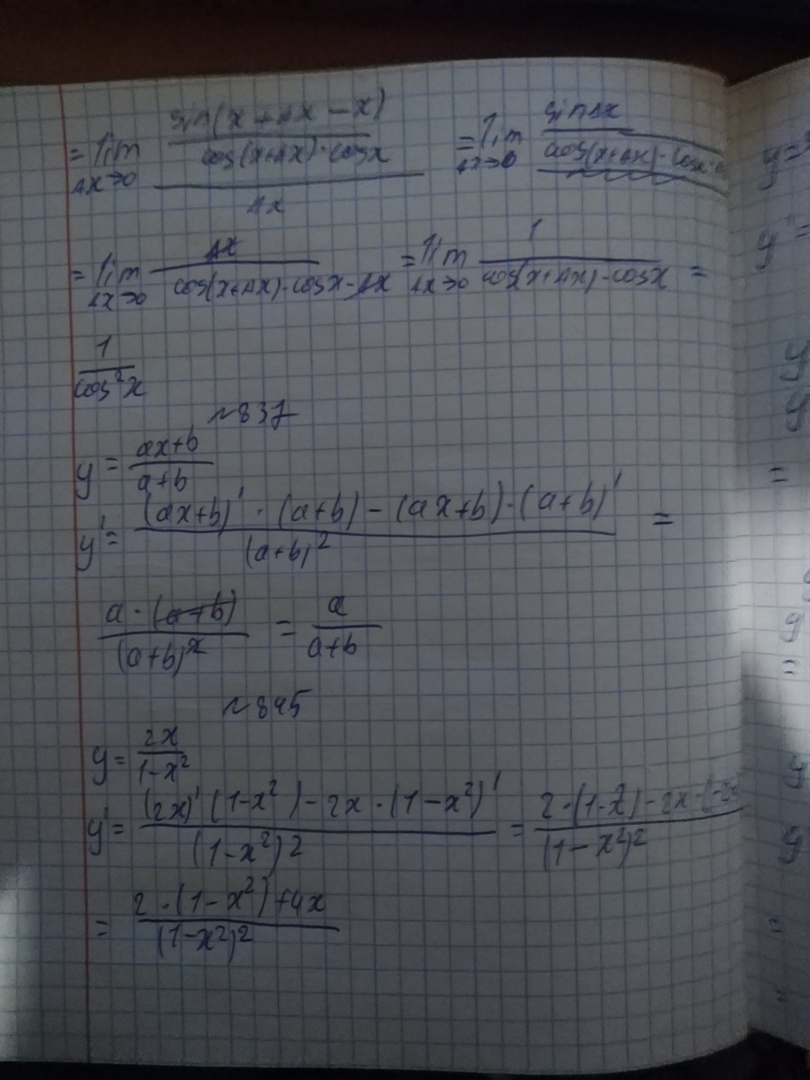 = lim Δx→0 (sin(x+Δx-x) / cos(x+Δx)·cosx) / Δx = lim Δx→0 sinΔx / cos(x+Δx)·cosx
= lim Δx→0 Δx / cos(x+Δx)·cosx·Δx = lim Δx→0 1 / cos(x+Δx)·cosx =
1 / cos²x
~837
y = ax+b / a+b
y' = (ax+b)'·(a+b)-(ax+b)·(a+b)' / (a+b)² =
a·(a+b) / (a+b)² = a / a+b
~845
y = 2x / 1-x²
y' = (2x)'(1-x²)-2x·(1-x²)' / (1-x²)2 = 2·(1-x²)-2x·(-2x / (1-x²)2
= 2·(1-x²)+4x / (1-x²)2
y =
y' =
y
y
=
y
=
y
y
=
=